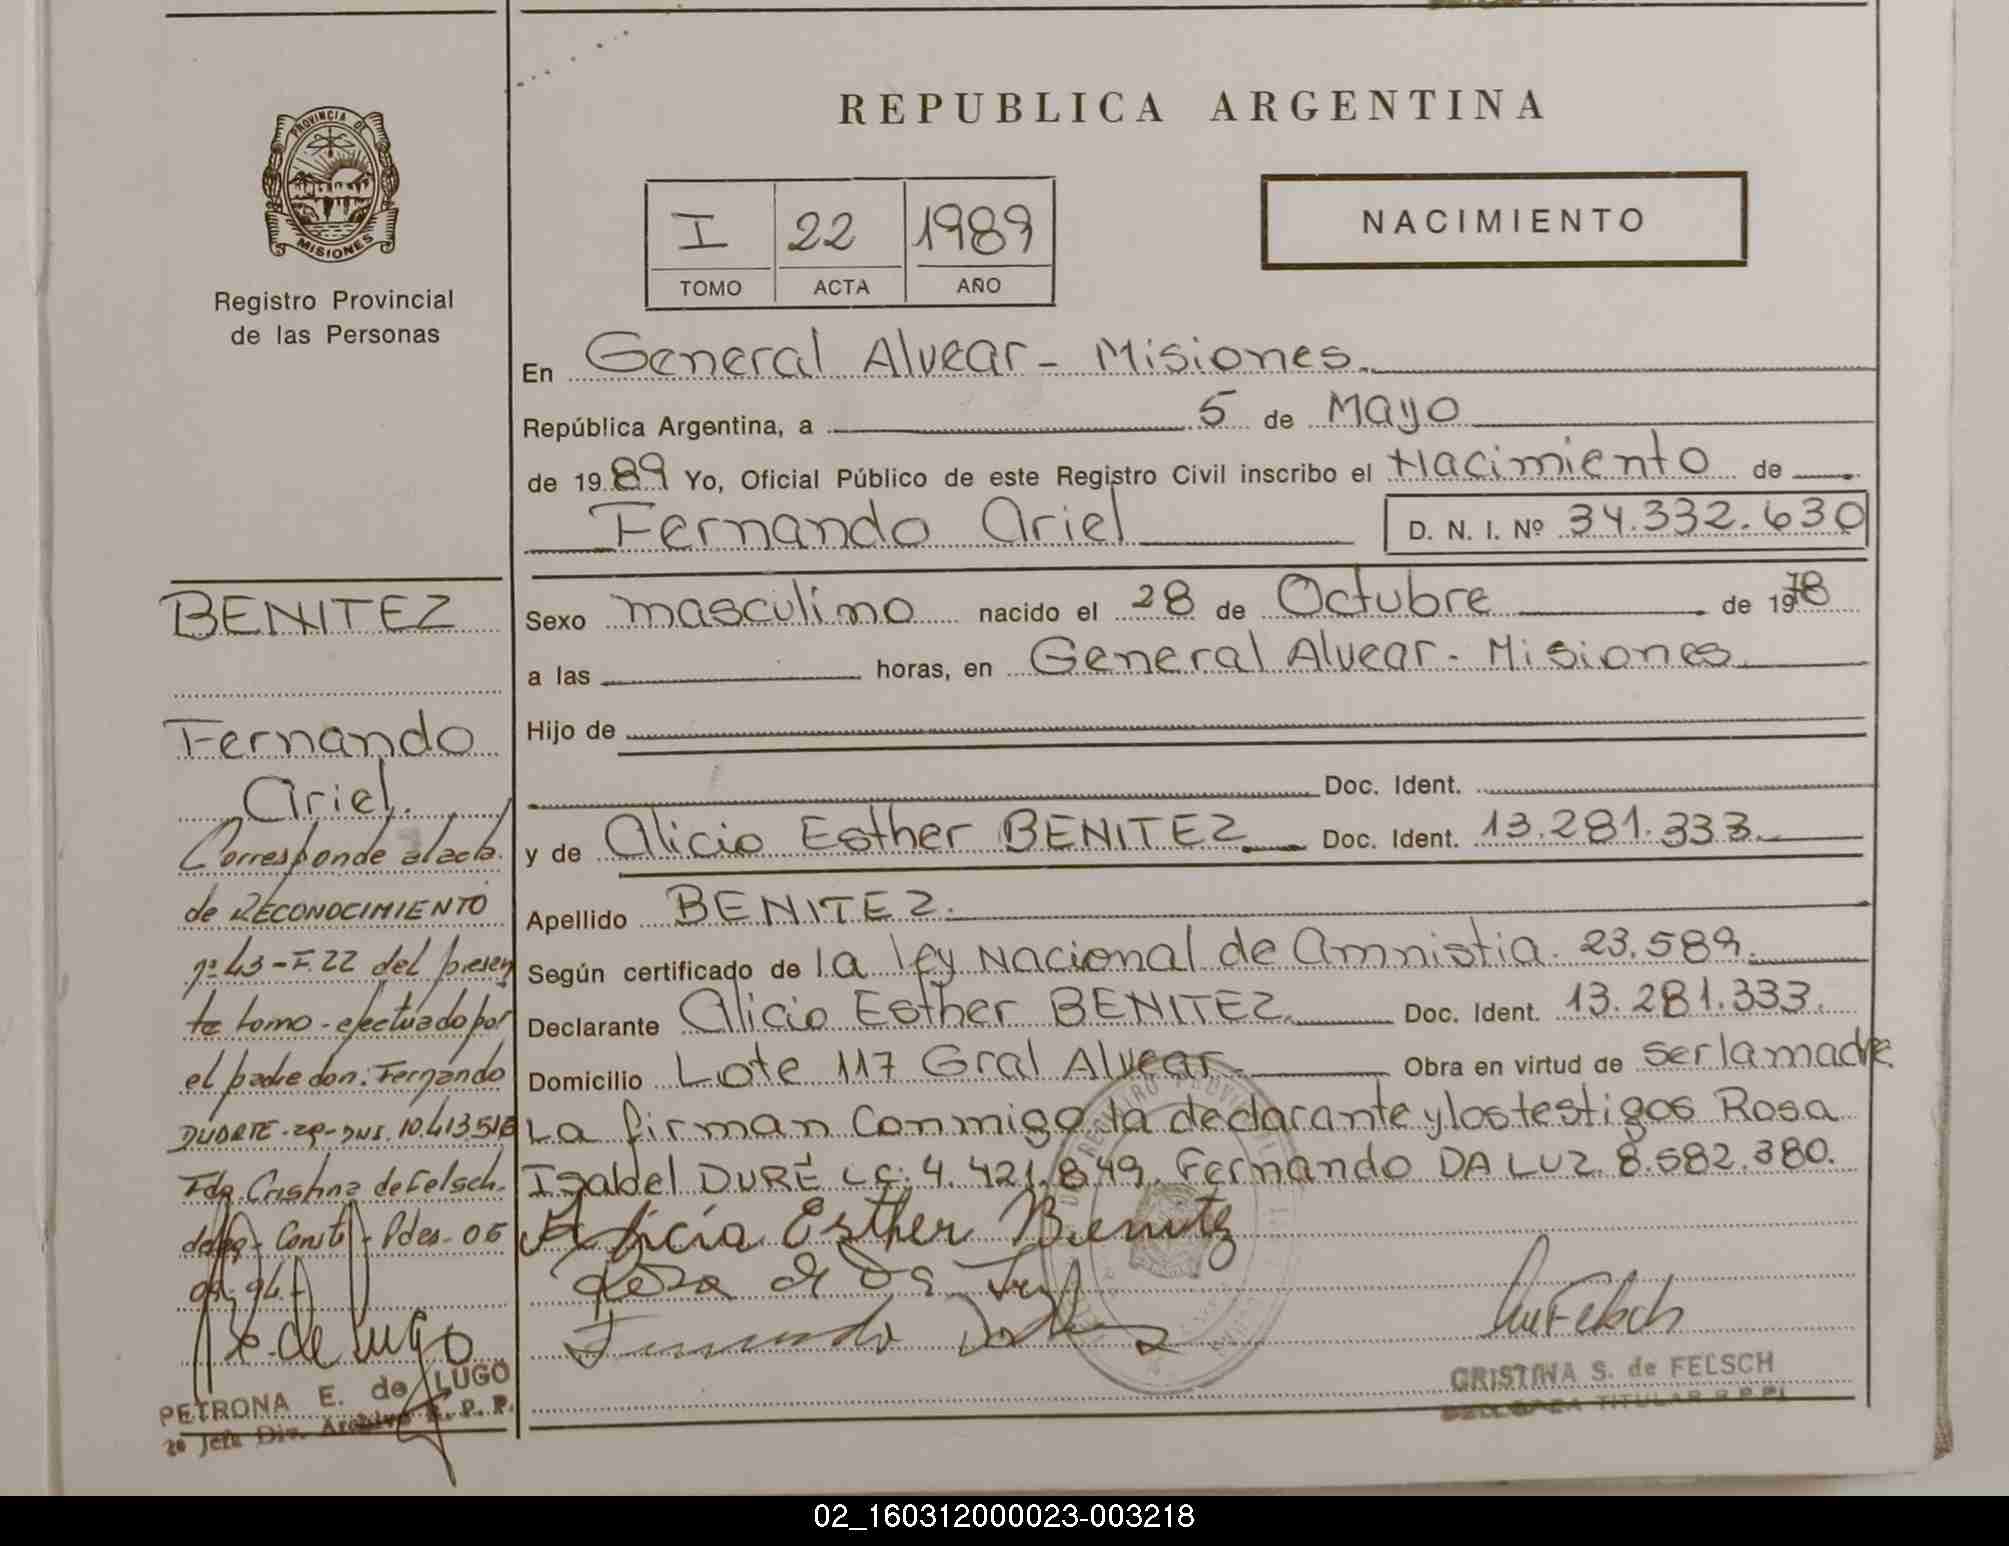 REPUBLICA ARGENTINA
PROVINCIA DE
MISIONES
Registro Provincial
de las Personas
I 22 1989
TOMO ACTA AÑO
NACIMIENTO
En General Alvear - Misiones.
República Argentina, a 5 de Mayo
de 1989 Yo, Oficial Público de este Registro Civil inscribo el Nacimiento de
Fernando Ariel D. N. I. Nº 34.332.630
Sexo masculino nacido el 28 de Octubre de 1978
a las horas, en General Alvear - Misiones
Hijo de
Doc. Ident.
y de Alicia Esther BENITEZ Doc. Ident. 13.281.333.
Apellido BENITEZ.
Según certificado de la ley Nacional de Amnistia. 23.589.
Declarante Alicia Esther BENITEZ. Doc. Ident. 13.281.333.
Domicilio Lote 117 Gral Alvear Obra en virtud de ser la madre
La firman conmigo la declarante y los testigos Rosa
Isabel DURÉ LC: 4.421.849. Fernando DA LUZ 8.582.380.
Alicia Esther Benitez
CRISTINA S. de FELSCH
DELEGADA TITULAR R.P.P.
BENITEZ
Fernando
Ariel.
Corresponde al acta
de RECONOCIMIENTO
nº 43 - F. 22 del presen
te tomo - efectuado por
el padre don: Fernando
DUARTE - DNI. 10.413.518
Fdo. Cristina de Felsch.
deleg - - Pdas - 05
09, 94.-
E. de Lugo
PETRONA E. de LUGO
2º Jefe Div. Archivo R. P. P.
02_160312000023-003218